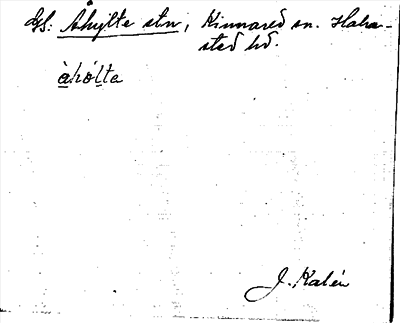 Gs: Åhylte stn, Kinnared sn. Halm-
sted hd.
àhólta
J. Kalén